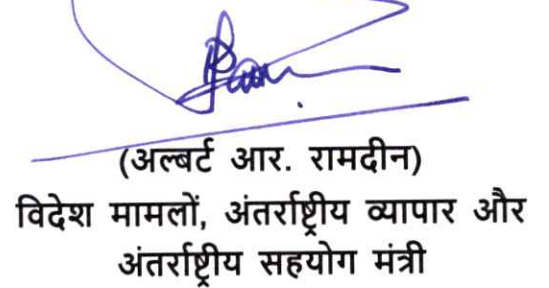 (अल्बर्ट आर. रामदीन)
विदेश मामलों, अंतर्राष्ट्रीय व्यापार और
अंतर्राष्ट्रीय सहयोग मंत्री